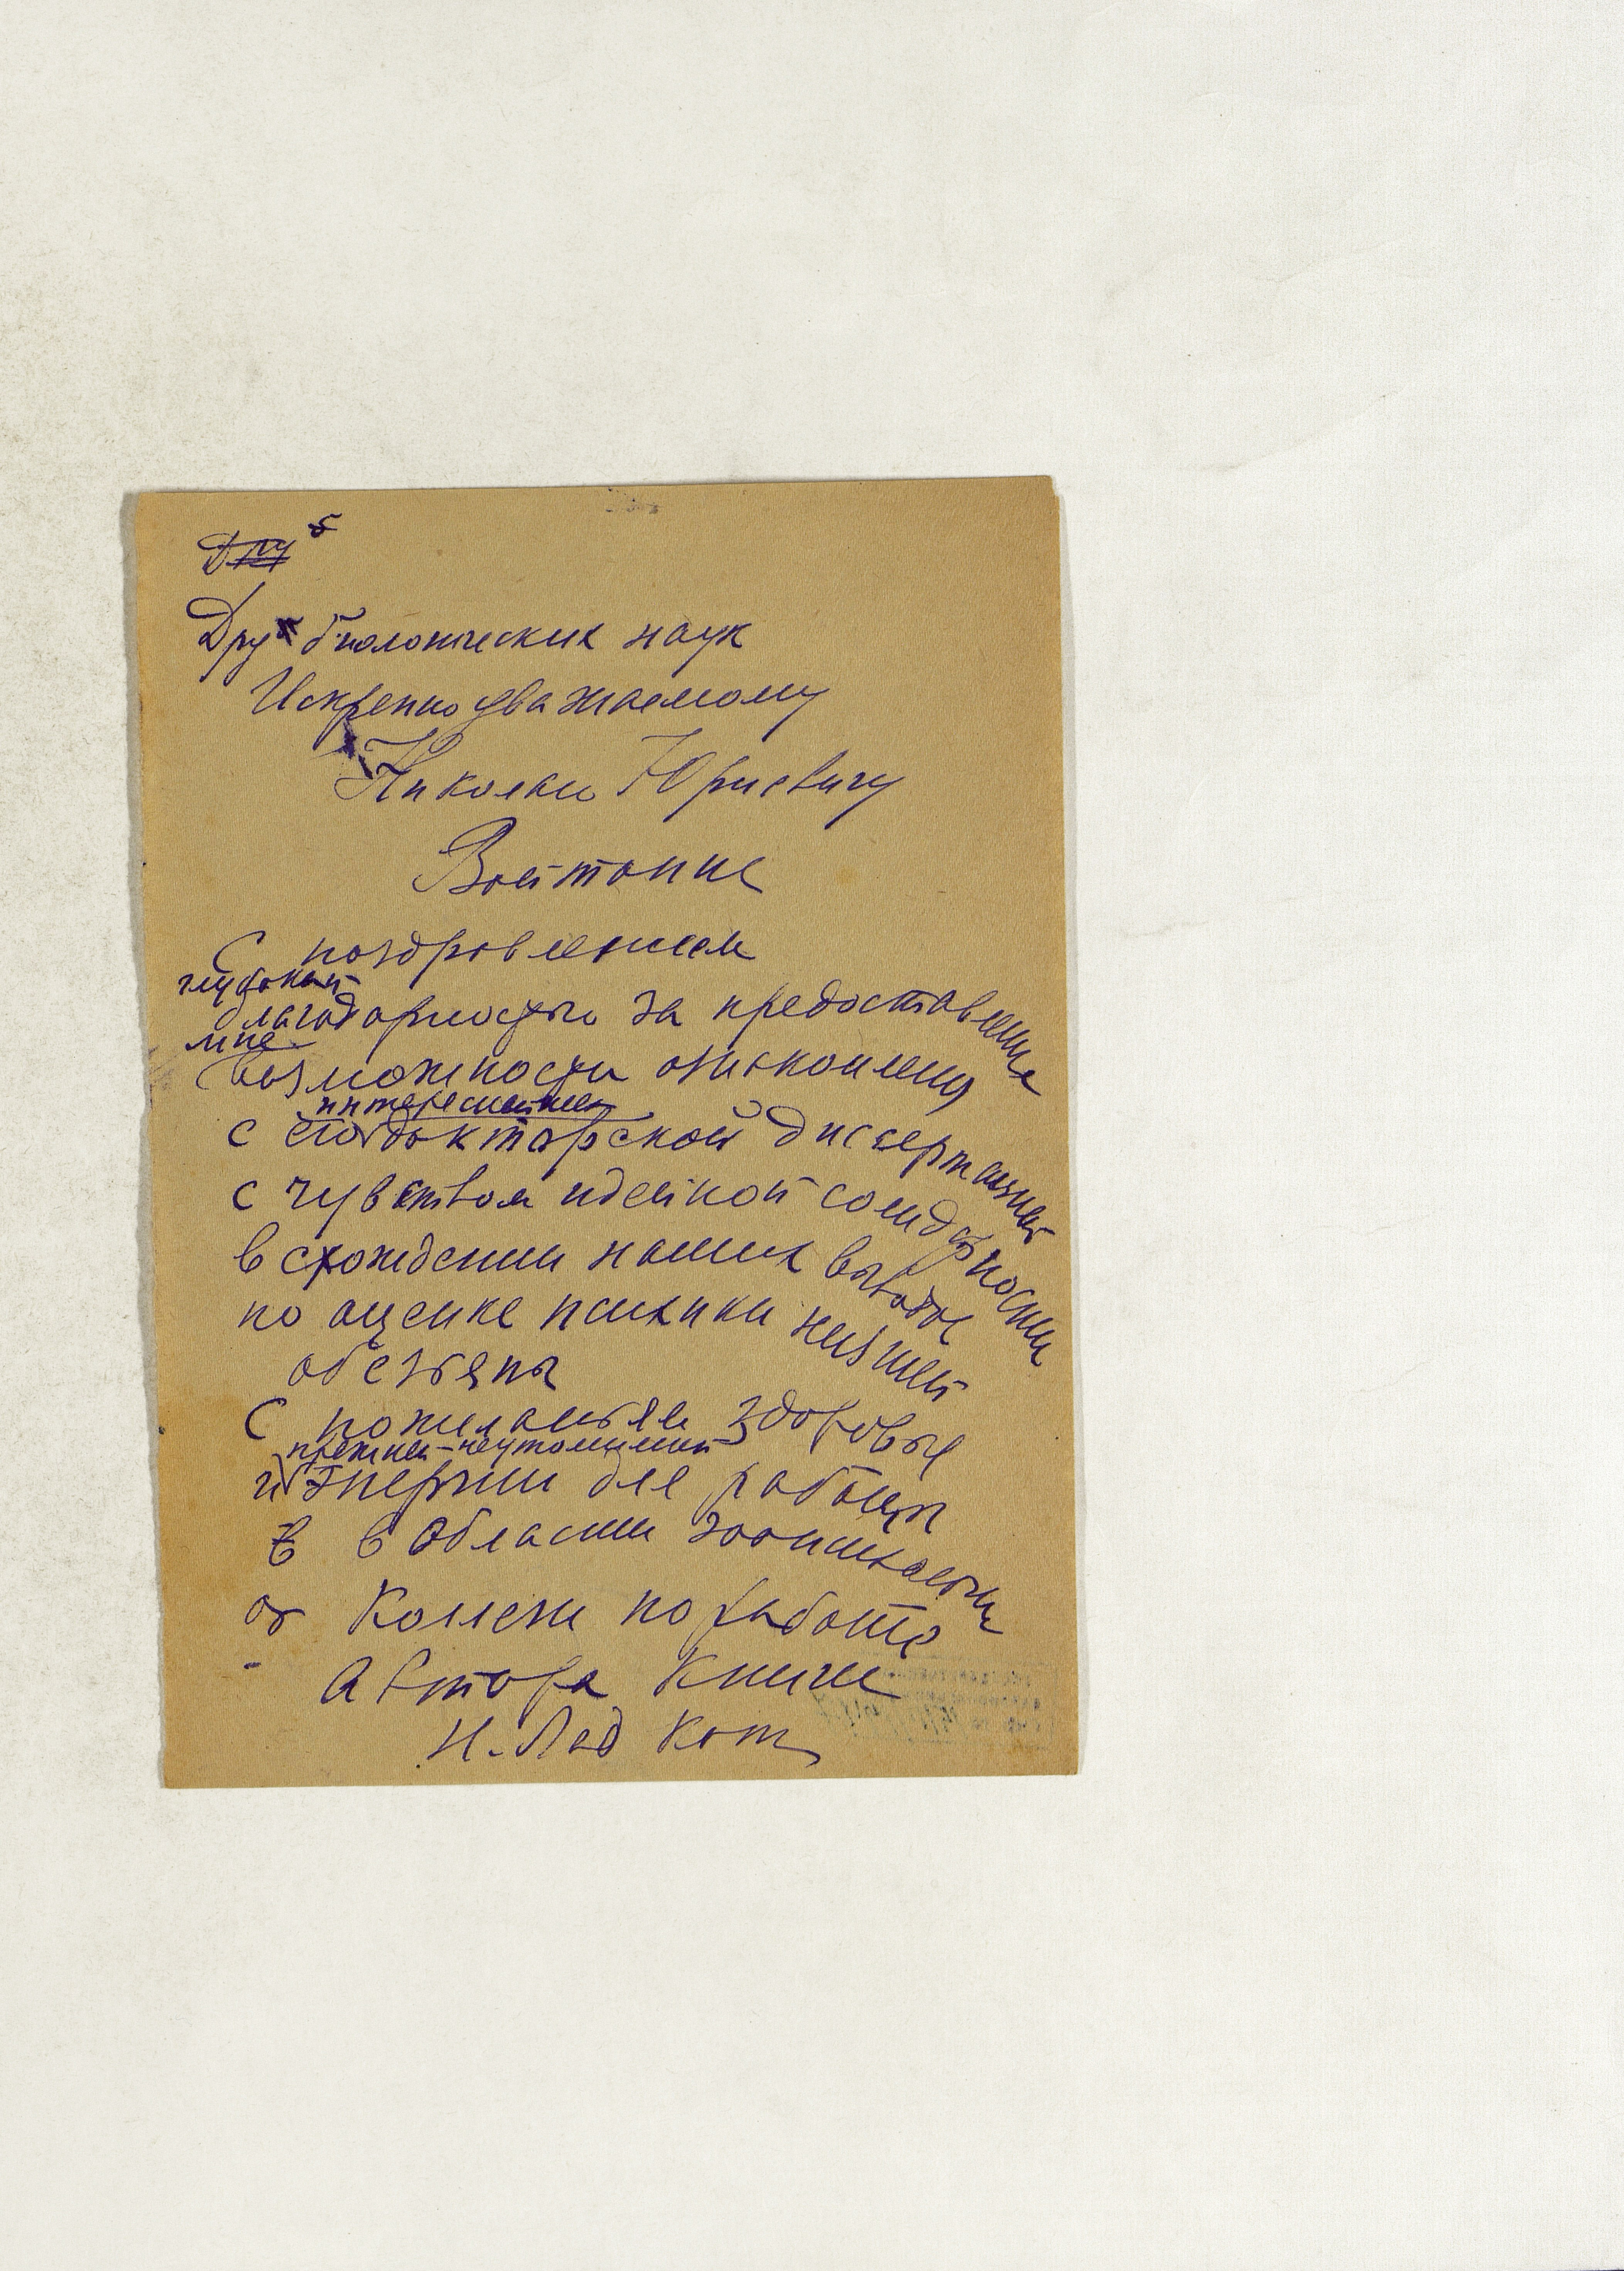 Дру б
Дру биологических наук
Искренно уважаемому
Николаю Юриевичу
Войтонис
С поздравлением
глубокой
благодарностью за предоставление
мне
возможности ознакомления
интереснейшей
с его докторской диссертацией
с чувством идейной солидарности
в схождении наших выводов
по оценке психики низшей
обезьяны
С пожеланьем здоровья
прежней неутомимой
и энергии для работы
в в области зоопсихологии
от Коллеги по работе
Автора Книги
Н. Лад Котс